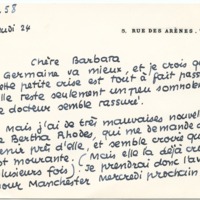 .58
eudi 24
5, RUE DES ARÈNES.
Chère Barbara
Germaine va mieux, et je crois q
ette petite crise est tout à fait pass
lle reste seulement un peu somnole
e docteur semble rassuré.
Mais j'ai de très mauvaises nouvel
e Bertha Rhodes, qui me demande d
enir près d'elle, et semble croire qu
st mourante. (Mais elle l'a déjà cr
lusieurs fois). Je prendrai donc l'av
our Manchester Mercredi prochain